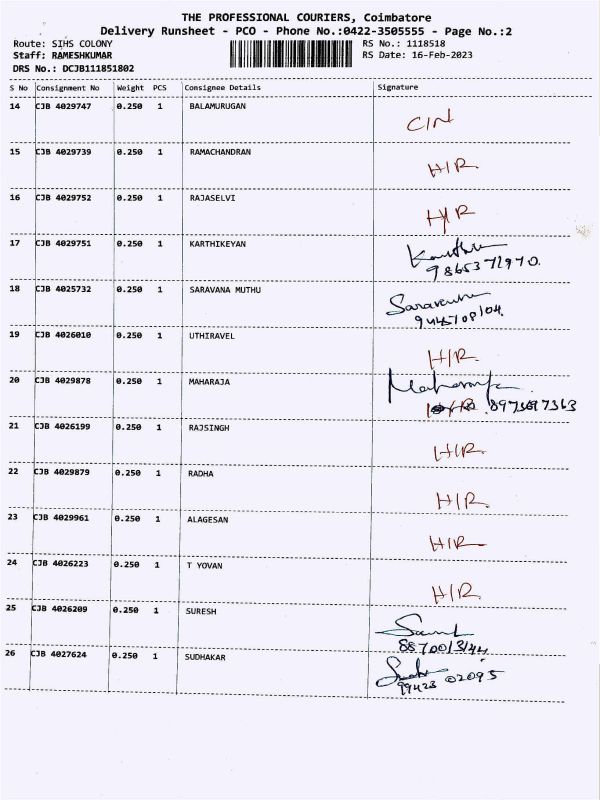 THE PROFESSIONAL COURIERS, Coimbatore
Delivery Runsheet - PCO - Phone No.:0422-3505555 - Page No.:2
Route: SIHS COLONY RS No.: 1118518
Staff: RAMESHKUMAR RS Date: 16-Feb-2023
DRS No.: DCJB111851802
S No Consignment No Weight PCS Consignee Details Signature
14 CJB 4029747 0.250 1 BALAMURUGAN
15 CJB 4029739 0.250 1 RAMACHANDRAN H/R
16 CJB 4029752 0.250 1 RAJASELVI H/R
17 CJB 4029751 0.250 1 KARTHIKEYAN
18 CJB 4025732 0.250 1 SARAVANA MUTHU
19 CJB 4026010 0.250 1 UTHIRAVEL H/R
20 CJB 4029878 0.250 1 MAHARAJA
21 CJB 4026199 0.250 1 RAJSINGH H/R
22 CJB 4029879 0.250 1 RADHA H/R
23 CJB 4029961 0.250 1 ALAGESAN H/R
24 CJB 4026223 0.250 1 T YOVAN H/R
25 CJB 4026209 0.250 1 SURESH
26 CJB 4027624 0.250 1 SUDHAKAR
99423 02095